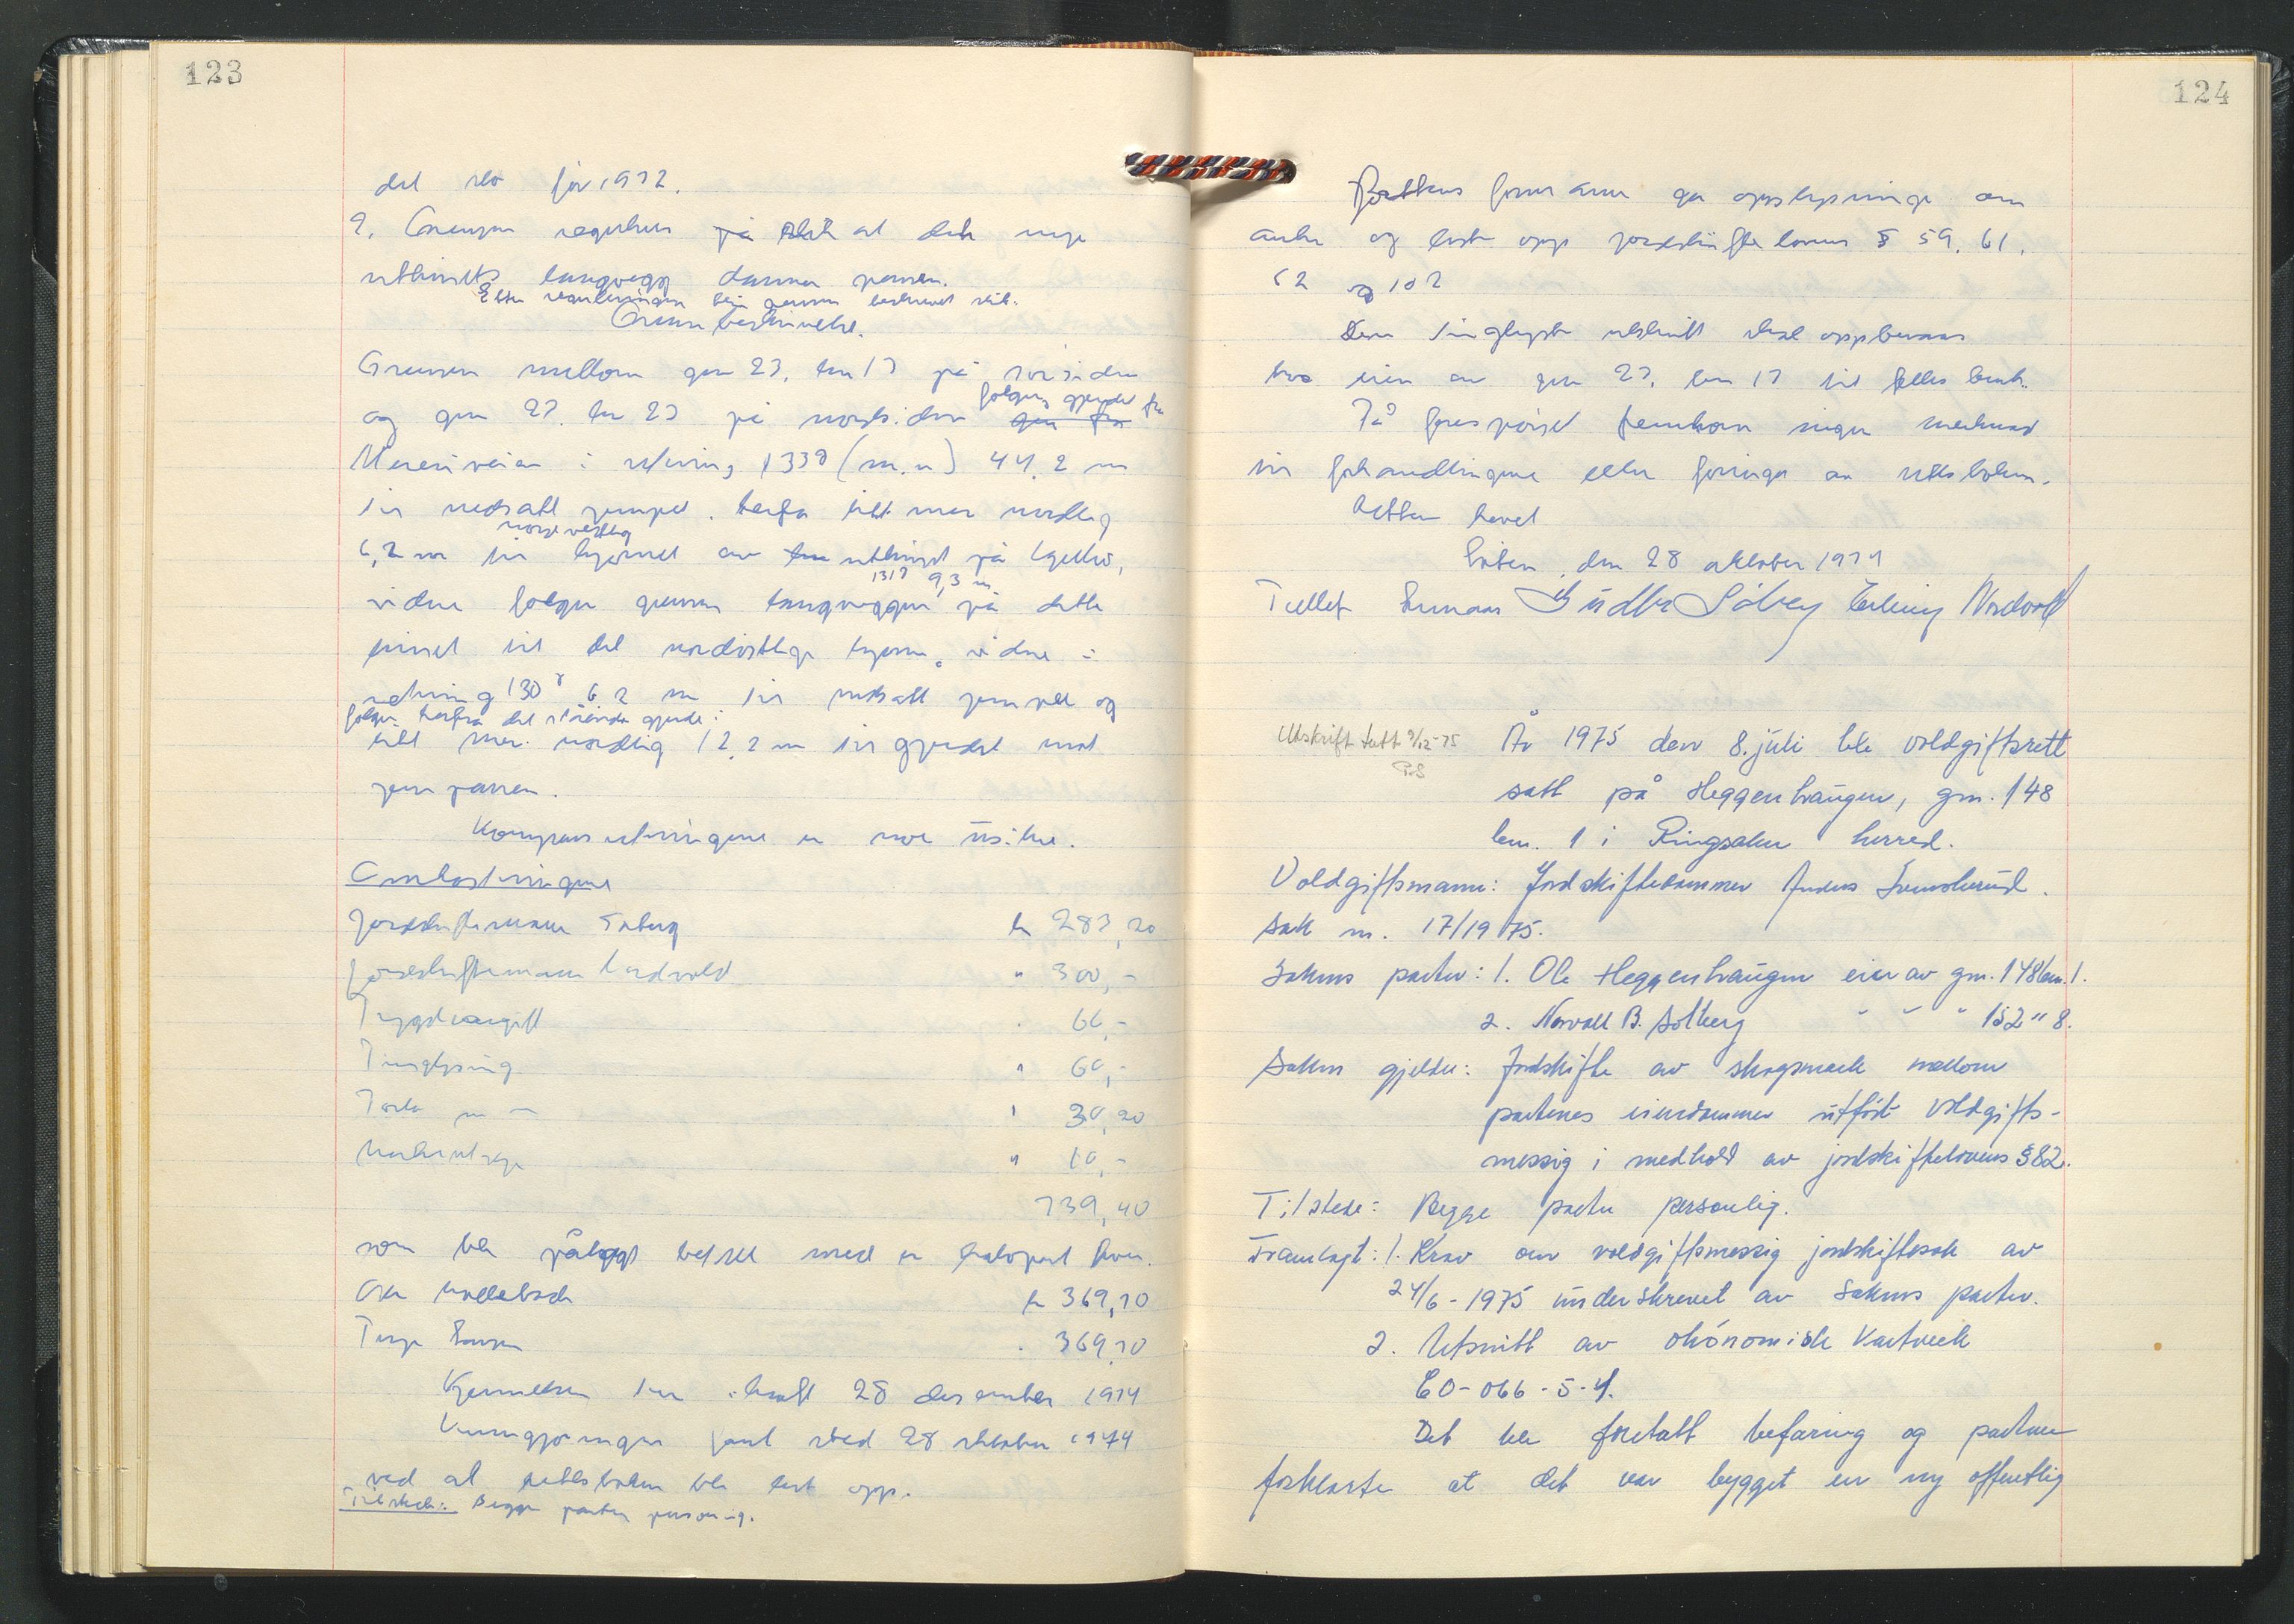 123
det sto før 1972.
2. Grensen reguleres på slik at det nye
uthusets langvegg danner grensen.
Etter reguleringen blir grensen beskrevet slik:
Grensebeskrivelse.
Grensen mellom gnr 23, bnr 17 på sørsiden
og gnr 23, bnr 23 på nordsiden følger gjerdet fra
i retning 133g (m.n) 44,2 m
til nedsatt jernrør. herfra litt mer nordlig
6,2 m til nordvestlig hjørnet av uthuset på
videre følger grensen langveggen 131g 9,3 m på dette
huset til det nordøstlige hjørne, videre i
retning 130g 6,2 m til nedsatt jernrør og
følger herfra det stående gjerde i
litt mer nordlig 12,2 m til gjerdet mot
Kompassretningene er noe usikre.
Omkostningene
jordskiftemann Søberg kr 283,20
jordskiftemann Nordvold " 300,-
Trygdeavgift " 66,-
Tinglysing " 60,-
Porto m m " 30,20
" 10,-
739,40
som ble pålagt betalt med en halvpart hver.
kr 369,70
" 369,70
Kjennelsen trer i kraft 28 desember 1974
Kunngjøringen fant sted 28 oktober 1974
ved at rettsboken ble lest opp.
Tilstede: Begge parter personlig.
124
Rettens formann ga opplysninger om
anke og leste opp jordskiftelovens § 59, 61,
62 og 102
Den tinglyste utskrift skal oppbevares
hos eier av gnr 23, bnr 17 til felles bruk.
På forespørsel fremkom ingen merknad
til forhandlingene eller føringen av rettsboken.
Retten hevet
Løten, den 28 oktober 1974
Søberg Erling Nordvold
Utskrift tatt 9/12-75
År 1975 den 8. juli ble voldgiftsrett
satt på Heggenhaugen, gnr. 148
bnr. 1 i Ringsaker herred.
Voldgiftsmann: Jordskiftedommer Anders
Sak nr. 17/1975.
Sakens parter: 1. Ole Heggenhaugen eier av gnr. 148 bnr. 1.
2. Norvall B. Solberg " " " 152 " 8.
Saken gjelder: Jordskifte av skogsmark mellom
partenes eiendommer utført voldgifts-
messig i medhold av jordskiftelovens § 82.
Tilstede: Begge parter personlig.
Framlagt: 1. Krav om voldgiftsmessig jordskiftesak av
24/6-1975 underskrevet av sakens parter.
2. Utsnitt av økonomisk kartverk
CO-066-5-4.
Det ble foretatt befaring og partene
forklarte at det var bygget en ny offentlig